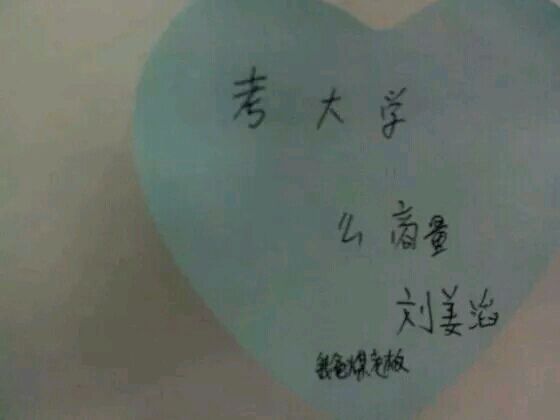 考大学
么商量
刘姜滔